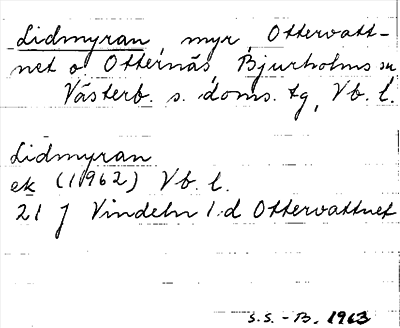 Lidmyran, myr, Ottervatt-
net o. Otternäs, Bjurholms sn,
Västerb. s. doms. tg, Vb. l.
Lidmyran
ek (1962) Vb. l.
21 J Vindeln 1.d Ottervattnet
S.S. - B. 1963